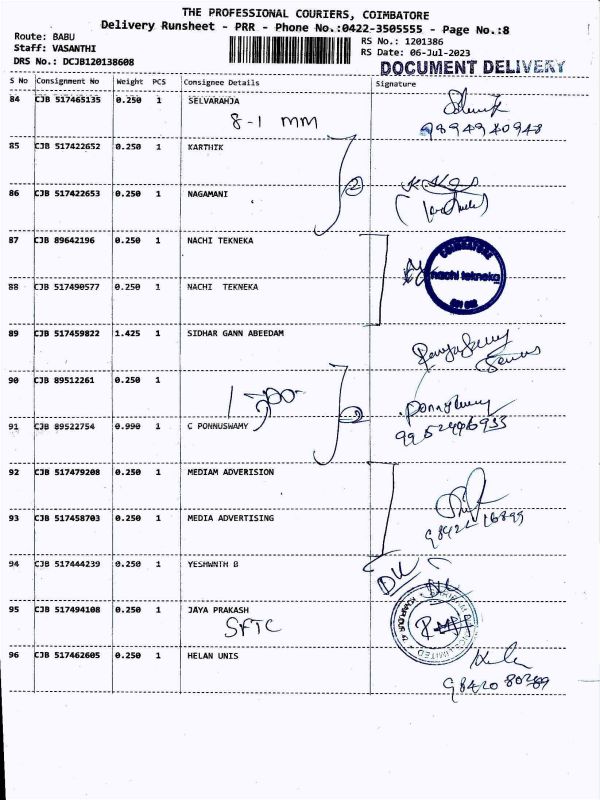 THE PROFESSIONAL COURIERS, COIMBATORE
Delivery Runsheet - PRR - Phone No.:0422-3505555 - Page No.:8
Route: BABU
Staff: VASANTHI
DRS No.: DCJB120138608
RS No.: 1201386
RS Date: 06-Jul-2023
DOCUMENT DELIVERY
S No Consignment No Weight PCS Consignee Details Signature
84 CJB 517465135 0.250 1 SELVARAHJA
8-1 MM
9894940948
85 CJB 517422652 0.250 1 KARTHIK
2
86 CJB 517422653 0.250 1 NAGAMANI
87 CJB 89642196 0.250 1 NACHI TEKNEKA
COIMBATORE
nachi tekneka
88 CJB 517490577 0.250 1 NACHI TEKNEKA
89 CJB 517459822 1.425 1 SIDHAR GANN ABEEDAM
90 CJB 89512261 0.250 1
2
91 CJB 89522754 0.990 1 C PONNUSWAMY
92 CJB 517479208 0.250 1 MEDIAM ADVERISION
93 CJB 517458703 0.250 1 MEDIA ADVERTISING
94 CJB 517444239 0.250 1 YESHWNTH B
DL
95 CJB 517494108 0.250 1 JAYA PRAKASH
SFTC
96 CJB 517462605 0.250 1 HELAN UNIS